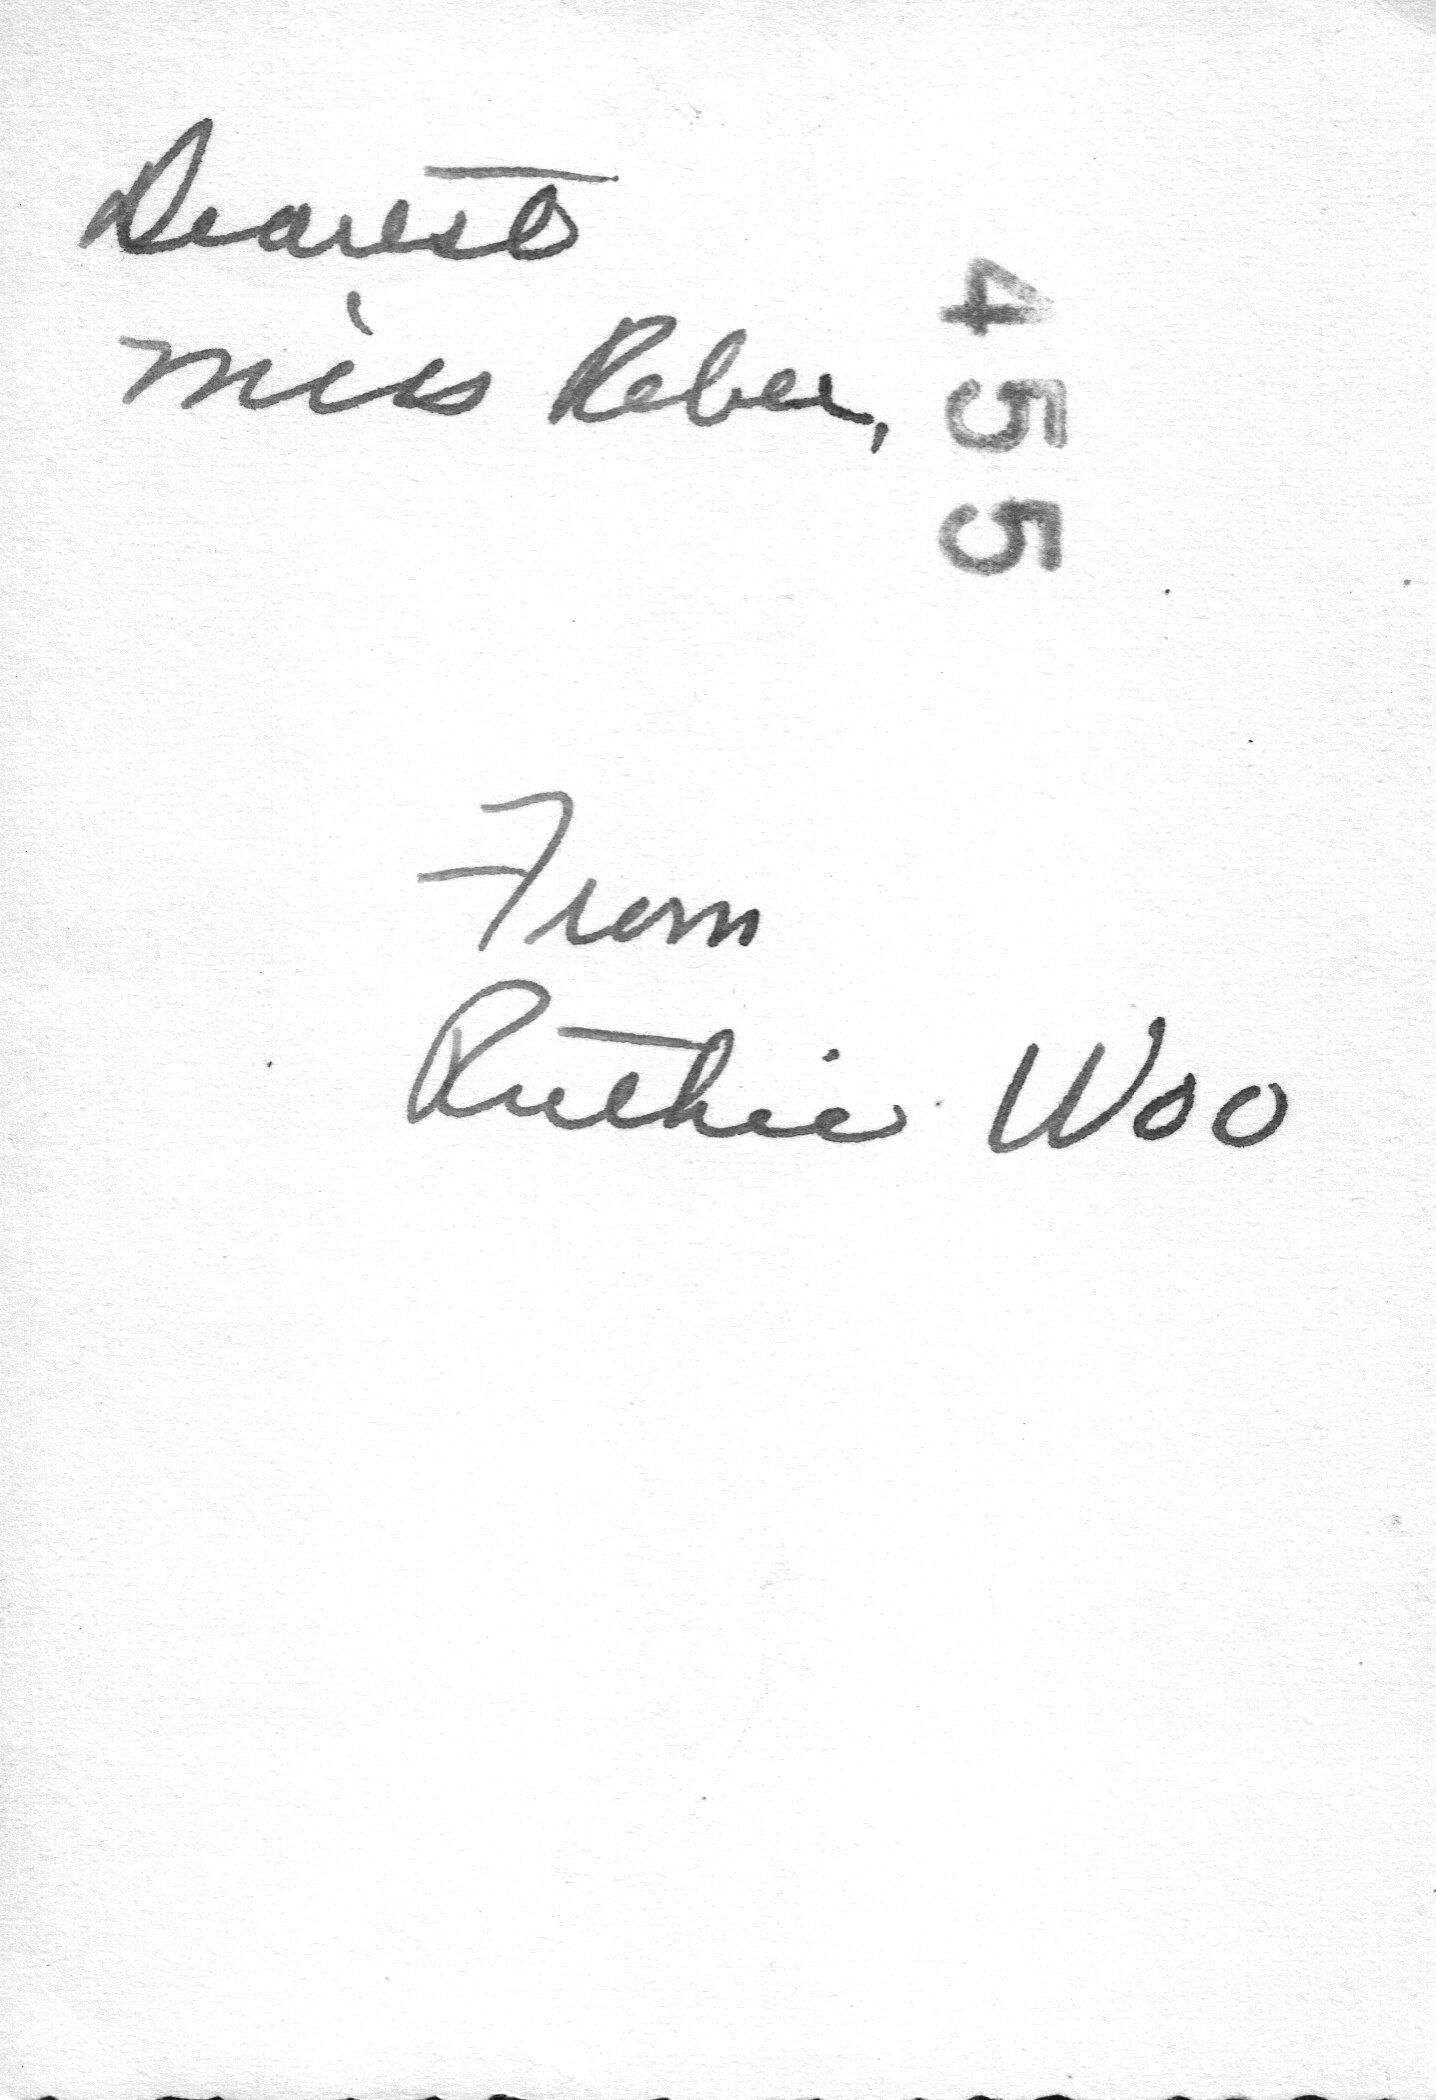 Dearest
Miss Reber,
455
From
Ruthie Woo